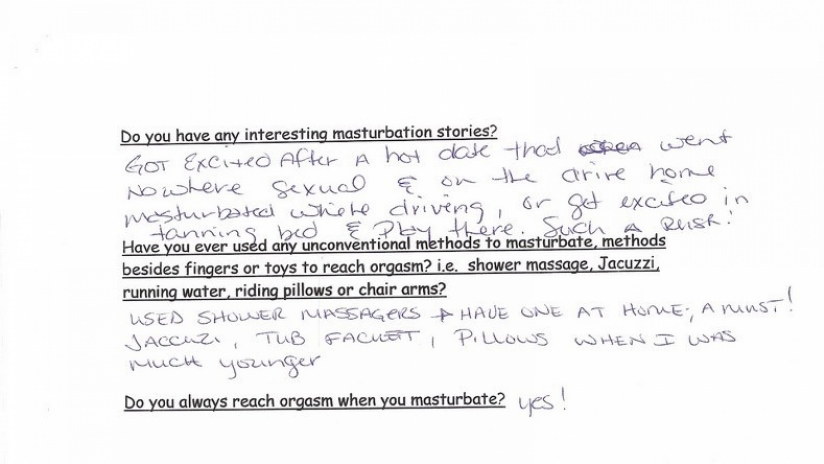 Do you have any interesting masturbation stories?
GOT EXCITED AFTER A hot date that went
Nowhere sexual & on the drive home
masturbated while driving, or get excited in
tanning bed & Play there. Such A RUSH!
Have you ever used any unconventional methods to masturbate, methods
besides fingers or toys to reach orgasm? i.e. shower massage, Jacuzzi,
running water, riding pillows or chair arms?
USED SHOWER MASSAGERS & HAVE ONE AT HOME; A MUST!
JACCUZI, TUB FACUETT, PILLOWS WHEN I WAS
much younger
Do you always reach orgasm when you masturbate? yes!